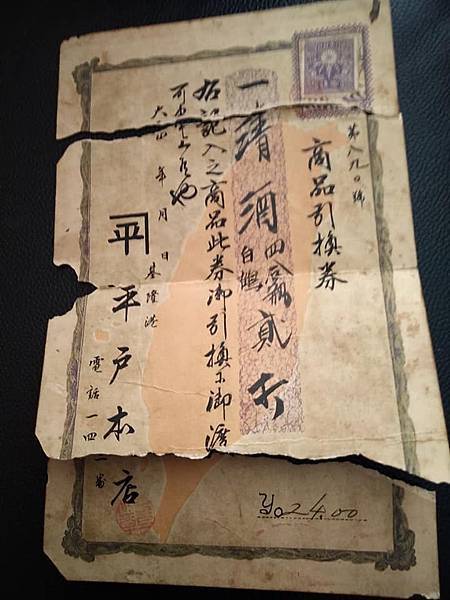 第八九〇號
商品引換券
一清酒
白鶴
四合瓶
貳打
右記入之商品此券御引換ニ御渡
可申上候也
大正 年 月 日
基隆港
平 平戸本店
電話一四一番
¥ 24.00